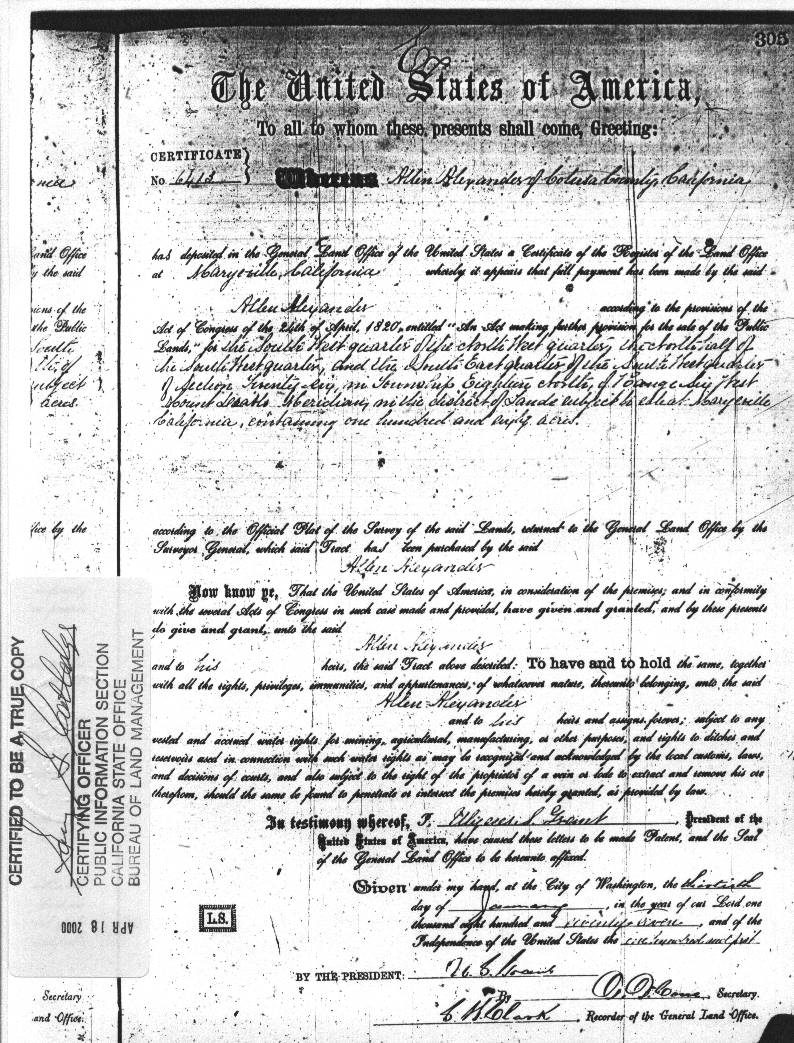 305
The United States of America,
To all to whom these presents shall come, Greeting:
CERTIFICATE
No 6413 Whereas Allen Alexander of Colusa County, California
has deposited in the General Land Office of the United States a Certificate of the Register of the Land Office
at Marysville, California whereby it appears that full payment has been made by the said
Allen Alexander according to the provisions of the
Act of Congress of the 24th of April, 1820, entitled "An Act making further provision for the sale of the Public
Lands," for the South West quarter of the North West quarter, the North half of
the South West quarter, and the South East quarter of the South West quarter
of Section Twenty six, in Township Eighteen North, of Range Six West
Mount Diablo Meridian, in the district of Lands subject to sale at Marysville
California, containing one hundred and sixty acres.
according to the Official Plat of the Survey of the said Lands, returned to the General Land Office by the
Surveyor General, which said Tract has been purchased by the said
Allen Alexander
Now know ye, That the United States of America, in consideration of the premises; and in conformity
with the several Acts of Congress in such case made and provided, have given and granted, and by these presents
do give and grant, unto the said
Allen Alexander
and to his heirs, the said Tract above described: To have and to hold the same, together
with all the rights, privileges, immunities, and appurtenances, of whatsoever nature, thereunto belonging, unto the said
Allen Alexander
and to his heirs and assigns forever; subject to any
vested and accrued water rights for mining, agricultural, manufacturing, or other purposes, and rights to ditches and
reservoirs used in connection with such water rights as may be recognized and acknowledged by the local customs, laws,
and decisions of courts, and also subject to the right of the proprietor of a vein or lode to extract and remove his ore
therefrom, should the same be found to penetrate or intersect the premises hereby granted, as provided by law.
In testimony whereof, I, Ulysses S. Grant, President of the
United States of America, have caused these letters to be made Patent, and the Seal
of the General Land Office to be hereunto affixed.
Given under my hand, at the City of Washington, the thirtieth
day of January, in the year of our Lord one
thousand eight hundred and seventy seven, and of the
Independence of the United States the one hundred and first
L.S.
BY THE PRESIDENT: U. S. Grant
By Secretary.
Recorder of the General Land Office.
nia
Land Office
y the said
ions of the
the Public
South
subject
acres.
fice by the
Secretary
and Office.
CERTIFIED TO BE A TRUE COPY
CERTIFYING OFFICER
PUBLIC INFORMATION SECTION
CALIFORNIA STATE OFFICE
BUREAU OF LAND MANAGEMENT
APR 18 2000